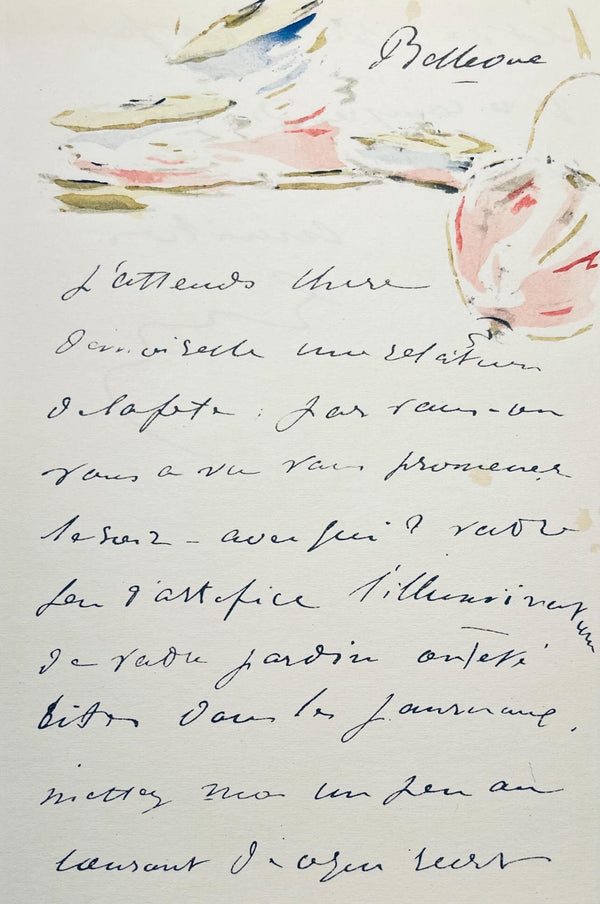 Bellevue
J'attends chère
Demoiselle une relation
de la fête. par vous - on
vous a vu vous promener
le soir - avec qui? votre
feu d'artifice l'illumination
de votre jardin ont été
cités dans les journaux,
mettez moi un peu au
courant de